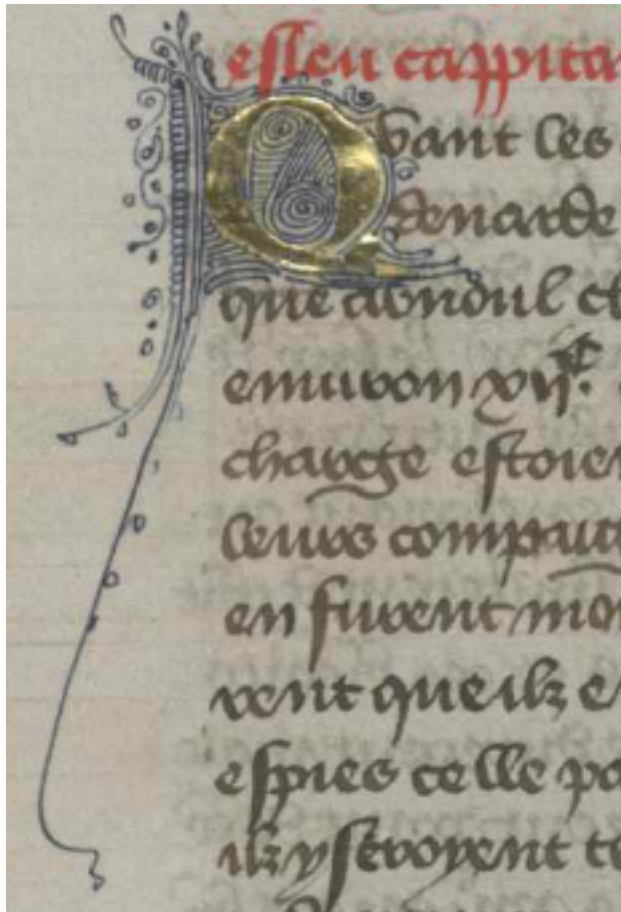 esleu cappita
Quant les
denarde
que arnoul cl
enuiron xijᶜ.
charge estoien
leurs compai
en furent mor
rent que ilz e
espies celle pa
ilz y seroyent te